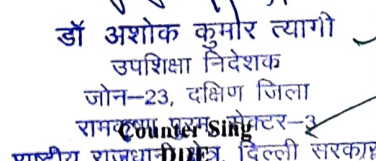 डॉ अशोक कुमार त्यागी
उपशिक्षा निदेशक
जोन–23, दक्षिण जिला
रामकृष्ण पुरम, सेक्टर–3
Counter Sing
राष्ट्रीय राजधानी क्षेत्र, दिल्ली सरकार